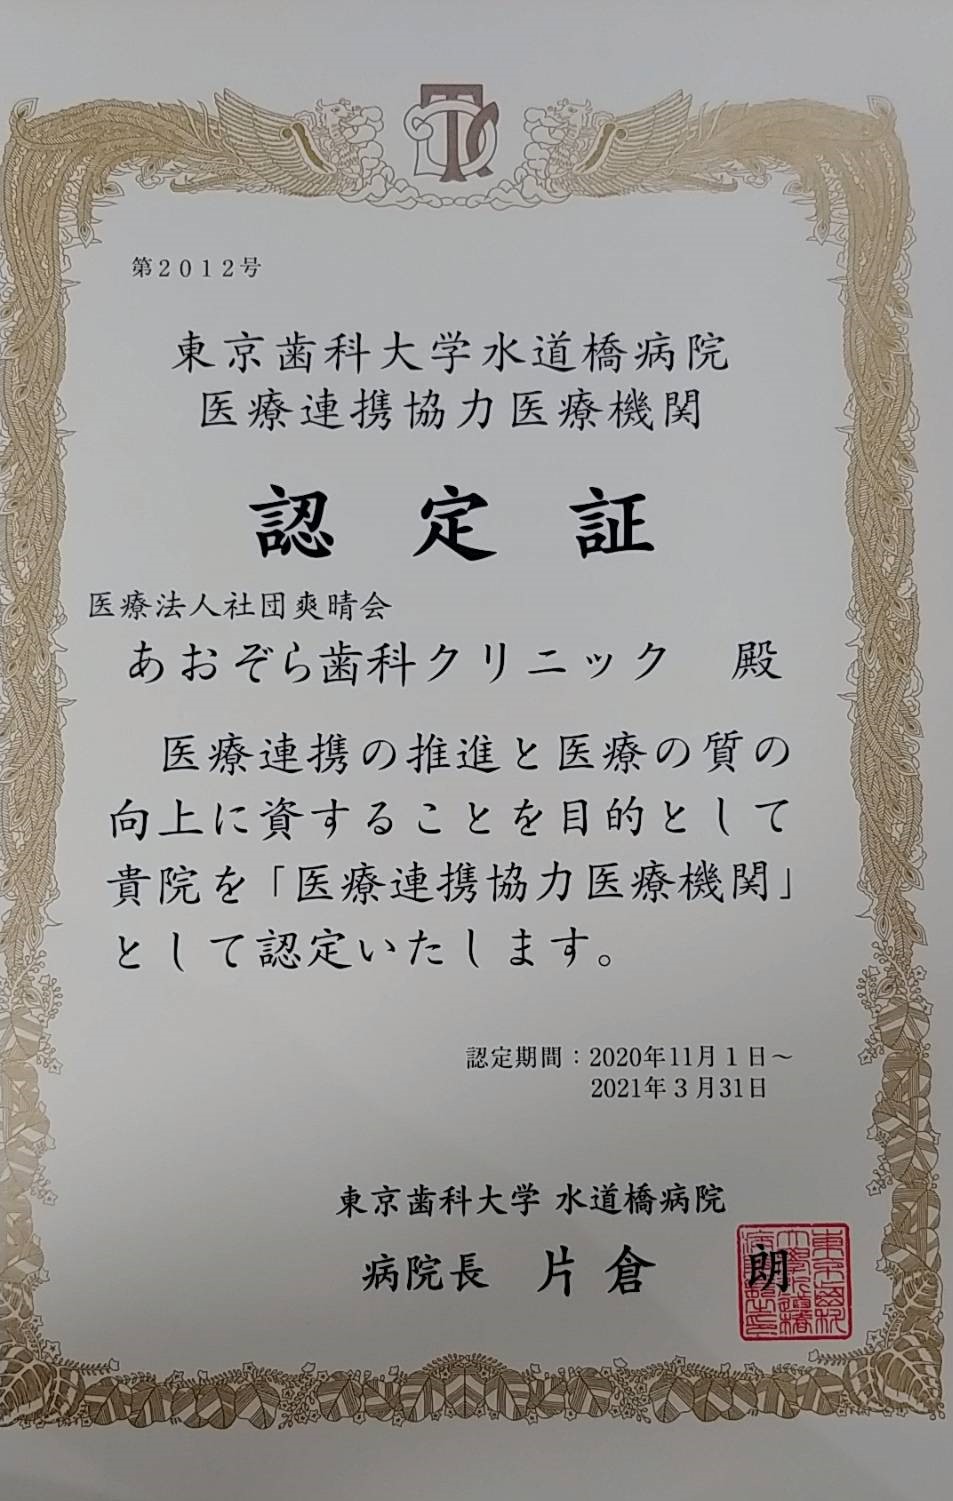 第２０１２号
東京歯科大学水道橋病院
医療連携協力医療機関
認定証
医療法人社団爽晴会
あおぞら歯科クリニック　殿
医療連携の推進と医療の質の
向上に資することを目的として
貴院を「医療連携協力医療機関」
として認定いたします。
認定期間：2020年11月１日～
2021年３月31日
東京歯科大学 水道橋病院
病院長　片倉　朗